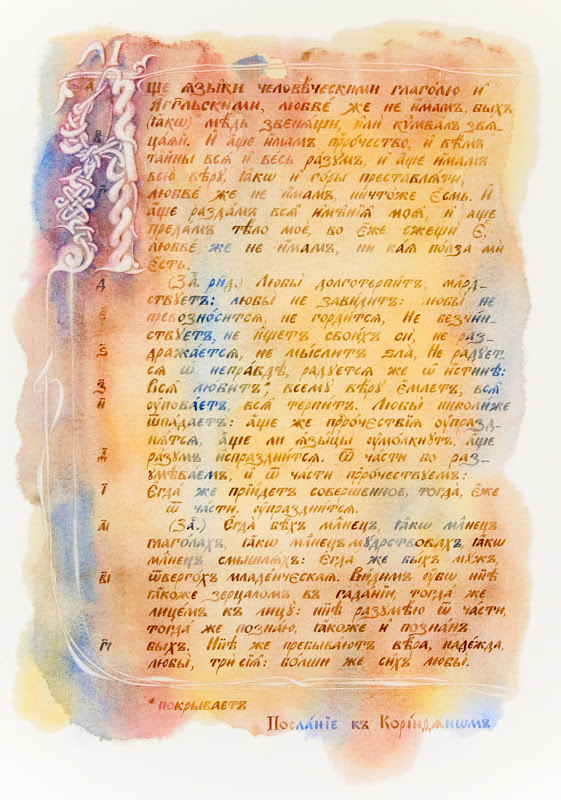 А҆́ще ѧ҆зы́ки человѣ́ческими глаго́лю и҆
а҆́гг҃льскими, любве́ же не и҆́мамъ, бы́хъ
(ꙗ҆́кѡ) мѣ́дь звеня́щи, и҆лѝ кѷмва́лъ звѧ-
ца́ѧй. И҆ а҆́ще и҆́мамъ прⷪ҇ро́чество, и҆ вѣ́мъ
та̑йны всѧ̑ и҆ ве́сь ра́зумъ, и҆ а҆́ще и҆́мамъ
всю̀ вѣ́ру, ꙗ҆́кѡ и҆ го́ры преставлѧ́ти,
любве́ же не и҆́мамъ, ничто́же є҆́смь. И҆
а҆́ще разда́мъ всѧ̑ и҆мѣ̑нїѧ моѧ̑, и҆ а҆́ще
преда́мъ тѣ́ло моѐ, во є҆́же сжещѝ є҆̀,
любве́ же не и҆́мамъ, ни ка́ѧ по́лза мѝ
є҆́сть.
д (За҄. рн҃д.) Любы̀ долготерпи́тъ, млⷭ҇рд-
ствуетъ: любы̀ не зави́дитъ: любы̀ не
є превозно́ситсѧ, не горди́тсѧ, Не безчи́н-
ствуетъ, не и҆́щетъ свои́хъ сѝ, не раз-
ѕ дража́етсѧ, не мы́слитъ ѕла̀, Не ра́дует-
сѧ ѡ҆ непра́вдѣ, ра́дуетсѧ же ѡ҆ и҆́стинѣ:
з Всѧ̑ лю́битъ*, всемꙋ̀ вѣ́ру є҆́млетъ, всѧ̑
и ᲂу҆пова́етъ, всѧ̑ терпи́тъ. Любы̀ николи́же
ѿпа́даетъ: а҆́ще же прⷪ҇ро́чествїѧ ᲂу҆праздн-
ѧ́тсѧ, а҆́ще ли ѧ҆зы́цы ᲂу҆мо́лкнутъ, а҆́ще
ѳ ра́зумъ и҆спраздни́тсѧ. Ѿ ча́сти бо раз-
умѣва́емъ, и҆ ѿ ча́сти прⷪ҇ро́чествуемъ:
і Є҆гда́ же прїи́детъ соверше́нное, тогда̀, є҆́же
ѿ ча́сти, ᲂу҆праздни́тсѧ.
аі (За҄.) Є҆гда̀ бѣ́хъ млⷣне́цъ, ꙗ҆́кѡ млⷣне́цъ
глаго́лахъ, ꙗ҆́кѡ млⷣне́цъ мꙋ́дрствовахъ, ꙗ҆́кѡ
млⷣне́цъ смышлѧ́хъ: є҆гда́ же бы́хъ му́жъ,
ві ѿверго́хъ младе́нческаѧ. Ви́димъ ᲂу҆́бѡ нн҃ѣ
ꙗ҆́коже зерца́ломъ въ гада́нїи, тогда́ же
лице́мъ къ лицу̀: нн҃ѣ разумѣ́ю ѿ ча́сти,
тогда́ же позна́ю, ꙗ҆́коже и҆ позна́нъ
гі бы́хъ. Нн҃ѣ же пребыва́ютъ вѣ́ра, наде́жда,
любы̀, трѝ сїѧ̑: бо́лши же си́хъ любы̀.
* покрыва́етъ
Посла́нїе къ Корі́нѳѧнѡмъ